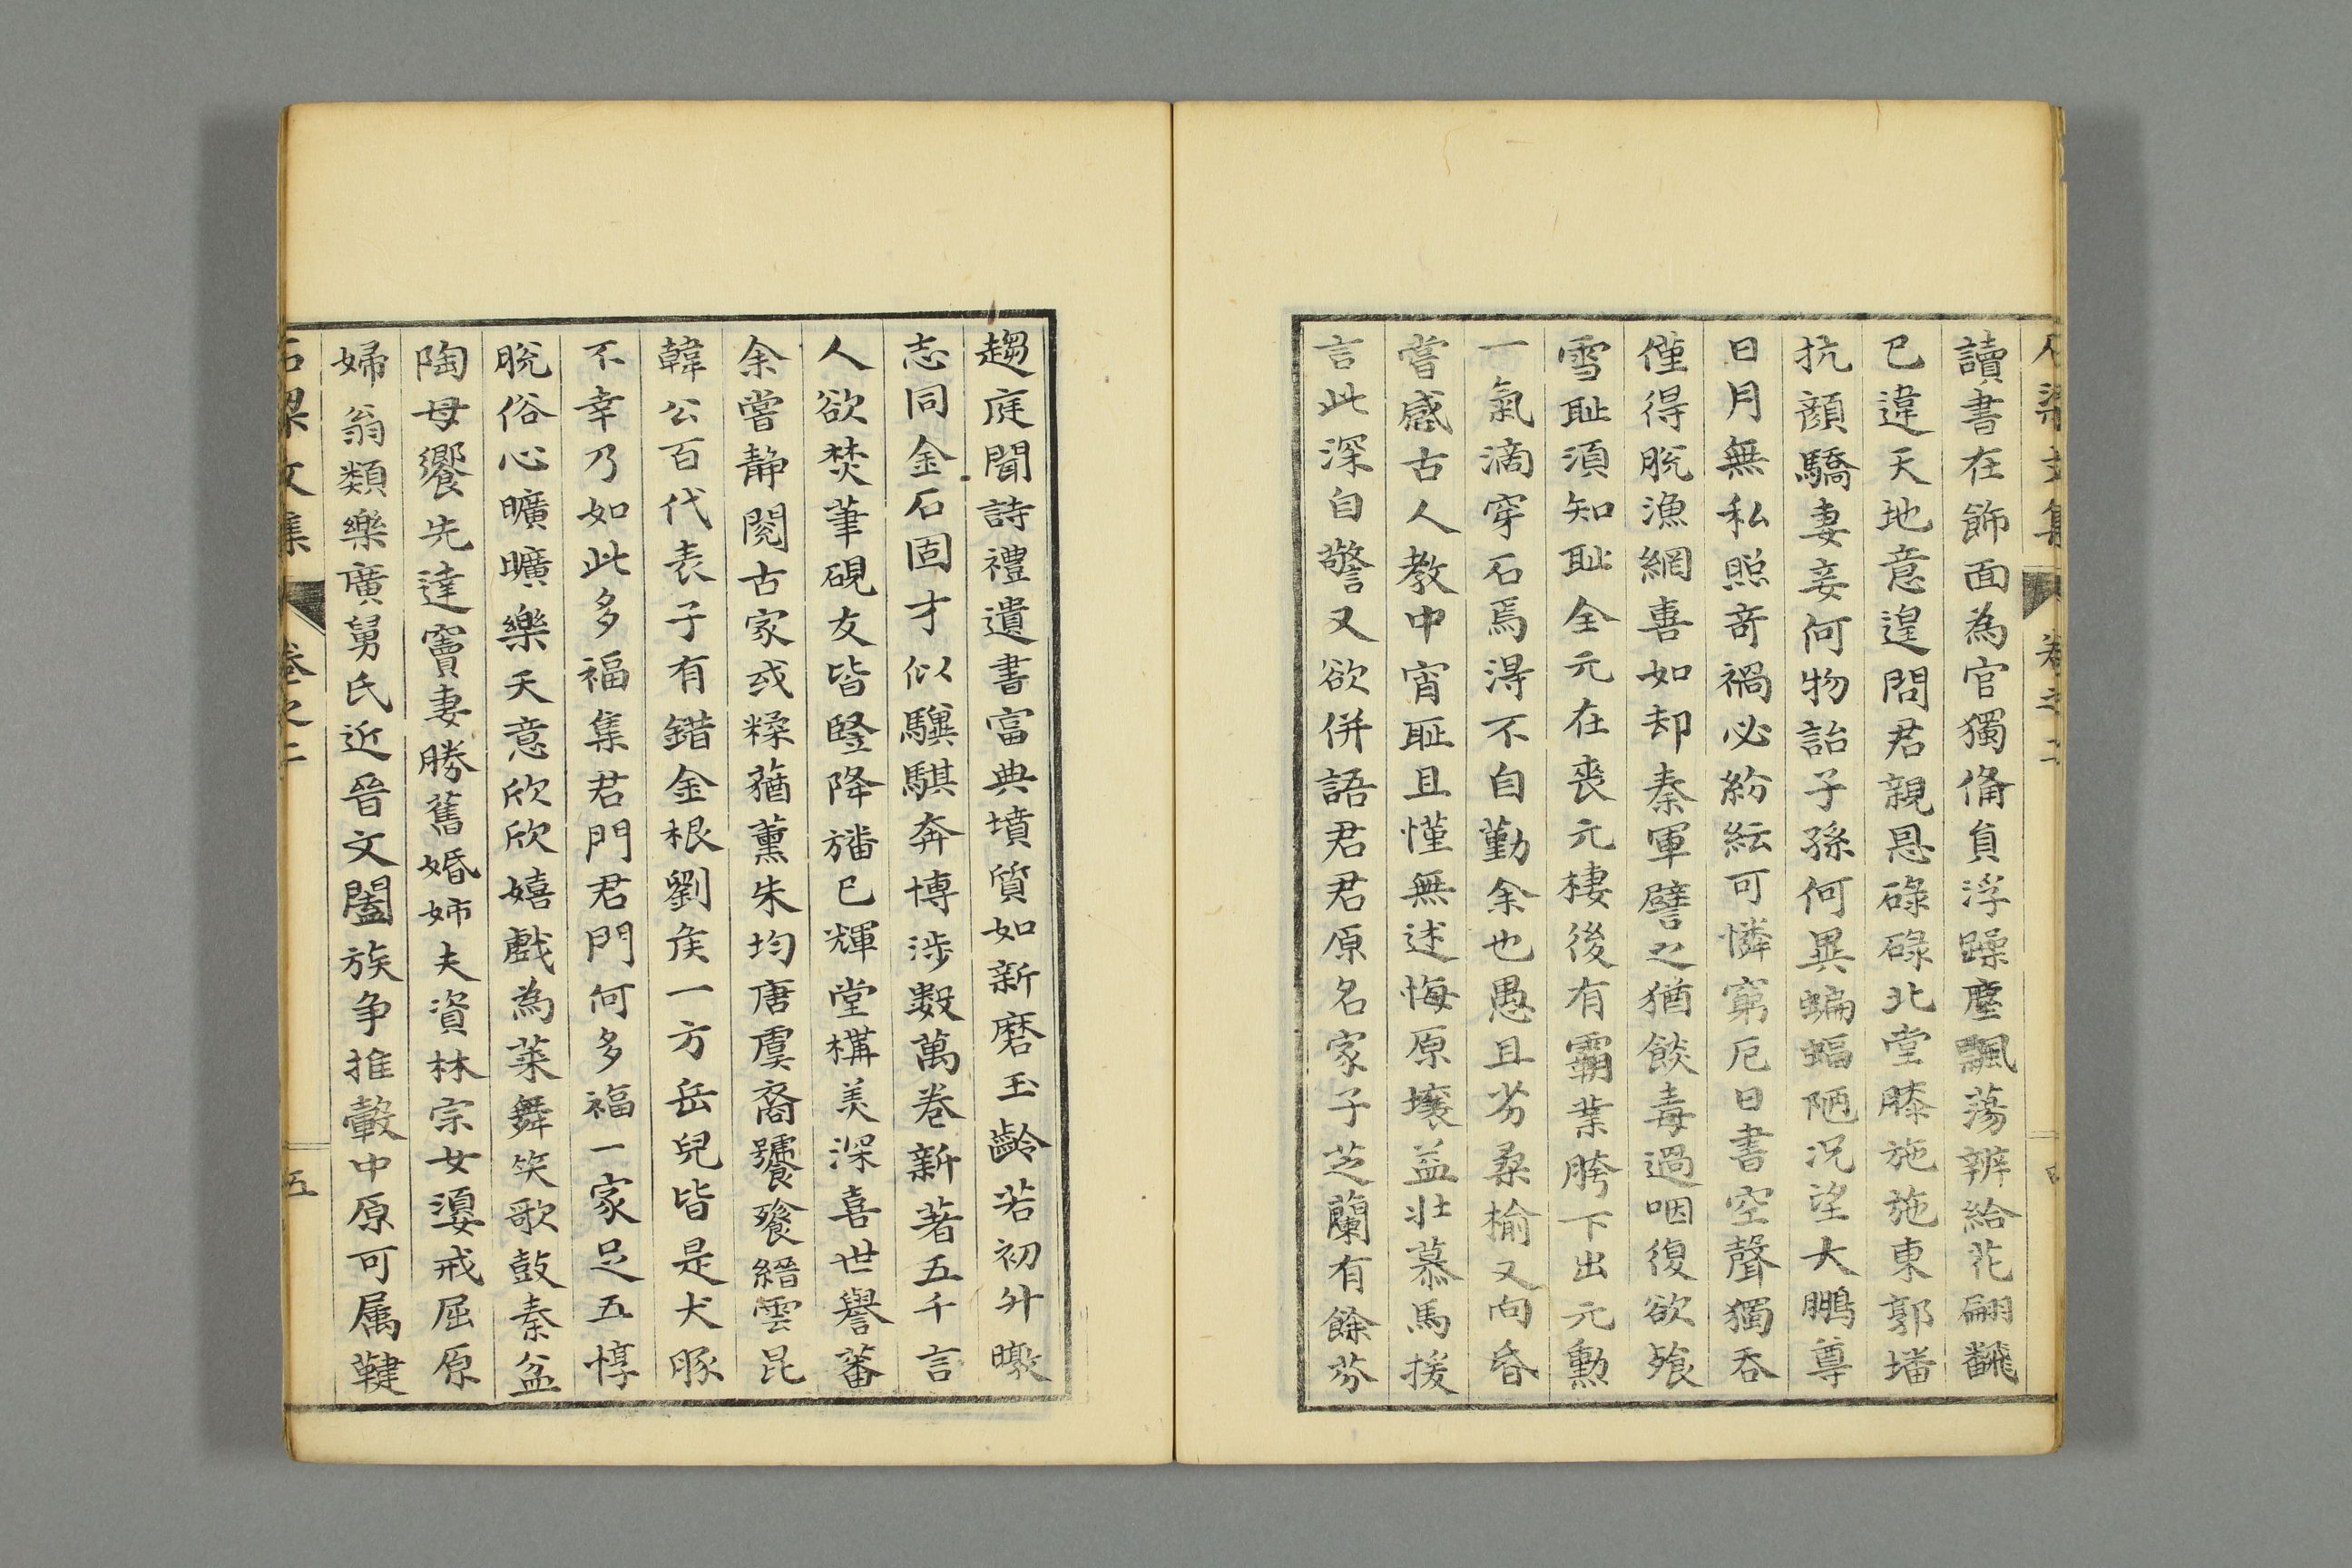 石梁文集 卷之二
讀書在飾面為官獨備負浮躁塵飄蕩辨給花翩飜
已違天地意遑問君親恩碌碌北堂膝施施東郭墦
抗顔驕妻妾何物詒子孫何異蝙蝠陋况望大鵬尊
日月無私照奇禍必紛紜可憐窮厄日書空聲獨吞
僅得脫漁網喜如却秦軍譬之猶餤毒過咽復欲飱
雪耻須知耻全元在喪元棲後有霸業胯下出元勳
一氣滴穿石焉淂不自勤余也愚且劣桑榆又向昏
嘗感古人教中宵耻且慬無述悔原壤益壯慕馬援
言此深自警又欲併語君君原名家子芝蘭有餘芬
趨庭聞詩禮遺書富典墳質如新磨玉齡若初升暾
志同金石固才似驥騏奔博涉數萬卷新著五千言
人欲焚筆硯友皆竪降旛已輝堂構美深喜世譽蕃
余嘗静閱古家或糅蕕薰朱均唐虞裔饕飱縉雲昆
韓公百代表子有錯金根劉矦一方岳兒皆是犬豚
不幸乃如此多福集君門君門何多福一家足五惇
脫俗心曠曠樂天意欣欣嬉戲為萊舞笑歌鼓秦盆
陶母饗先達竇妻勝舊婚姉夫資林宗女𡡓戒屈原
婦翁類樂廣舅氏近晉文闔族争推轂中原可属鞬
石梁文集 卷之二 五